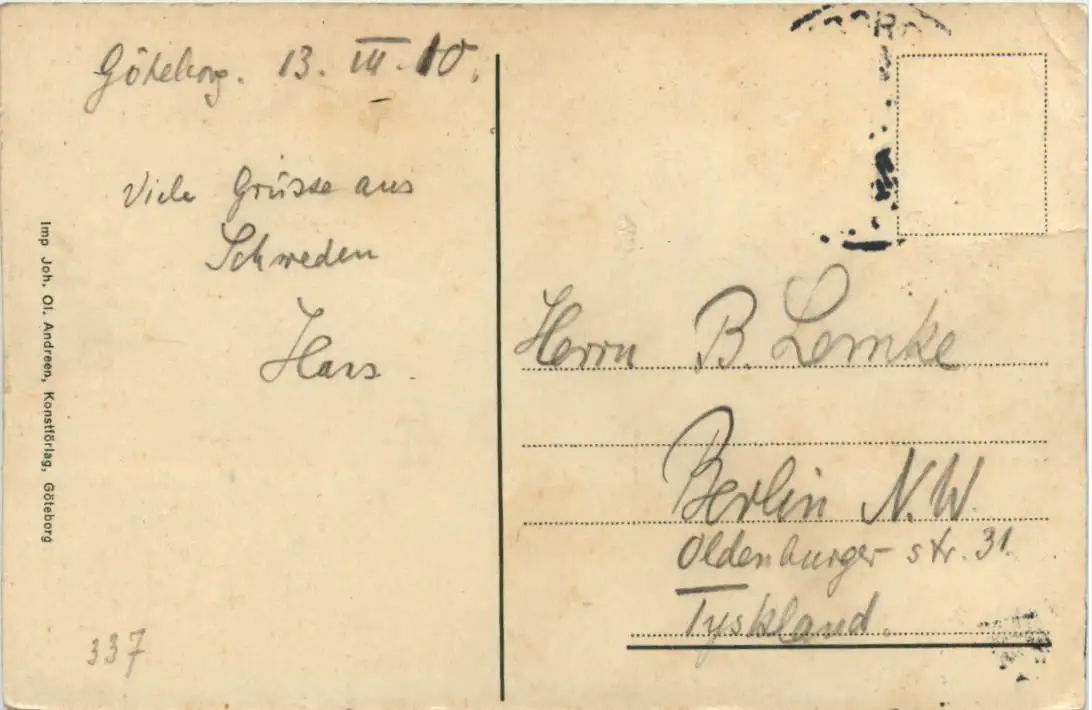 Göteborg. 13. III. 10.
Viele Grüsse aus
Schweden
Hans.
Imp Joh. Ol. Andreen, Konstförlag, Göteborg
337
Herrn B. Lemke
Berlin N.W.
Oldenburger str. 31.
Tyskland.